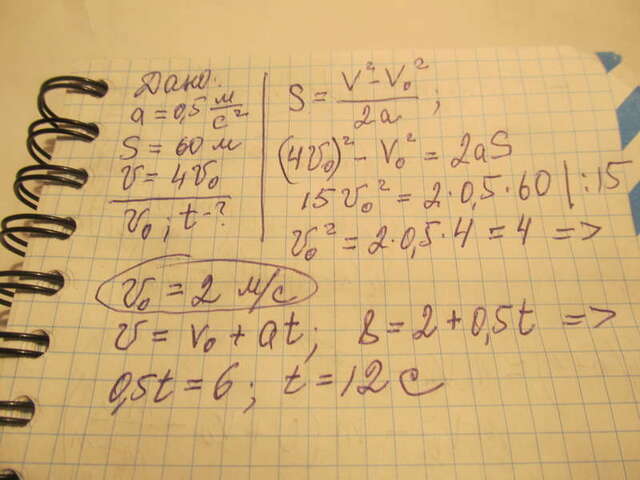 Дано:
a = 0,5 м/с²
S = 60 м
v = 4v₀
v₀; t - ?
S = (V² - V₀²)/2a ;
(4v₀)² - V₀² = 2aS
15v₀² = 2·0,5·60 | :15
v₀² = 2·0,5·4 = 4 =>
v₀ = 2 м/с
v = v₀ + at; 8 = 2 + 0,5t =>
0,5t = 6; t = 12 с